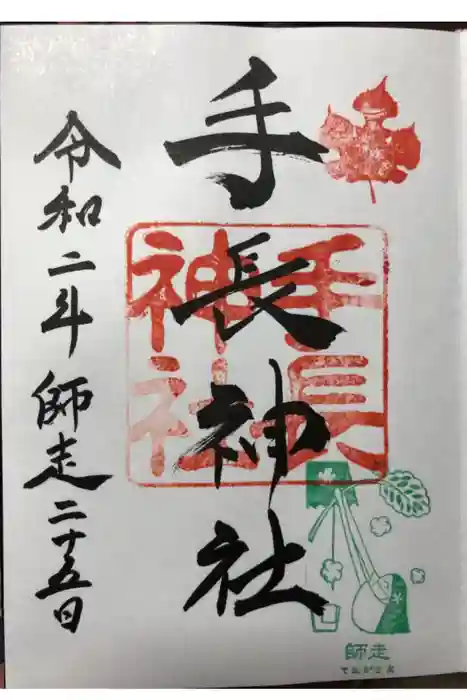 手長神社
手長
神社
令和二年師走二十五日
師走
てながさま